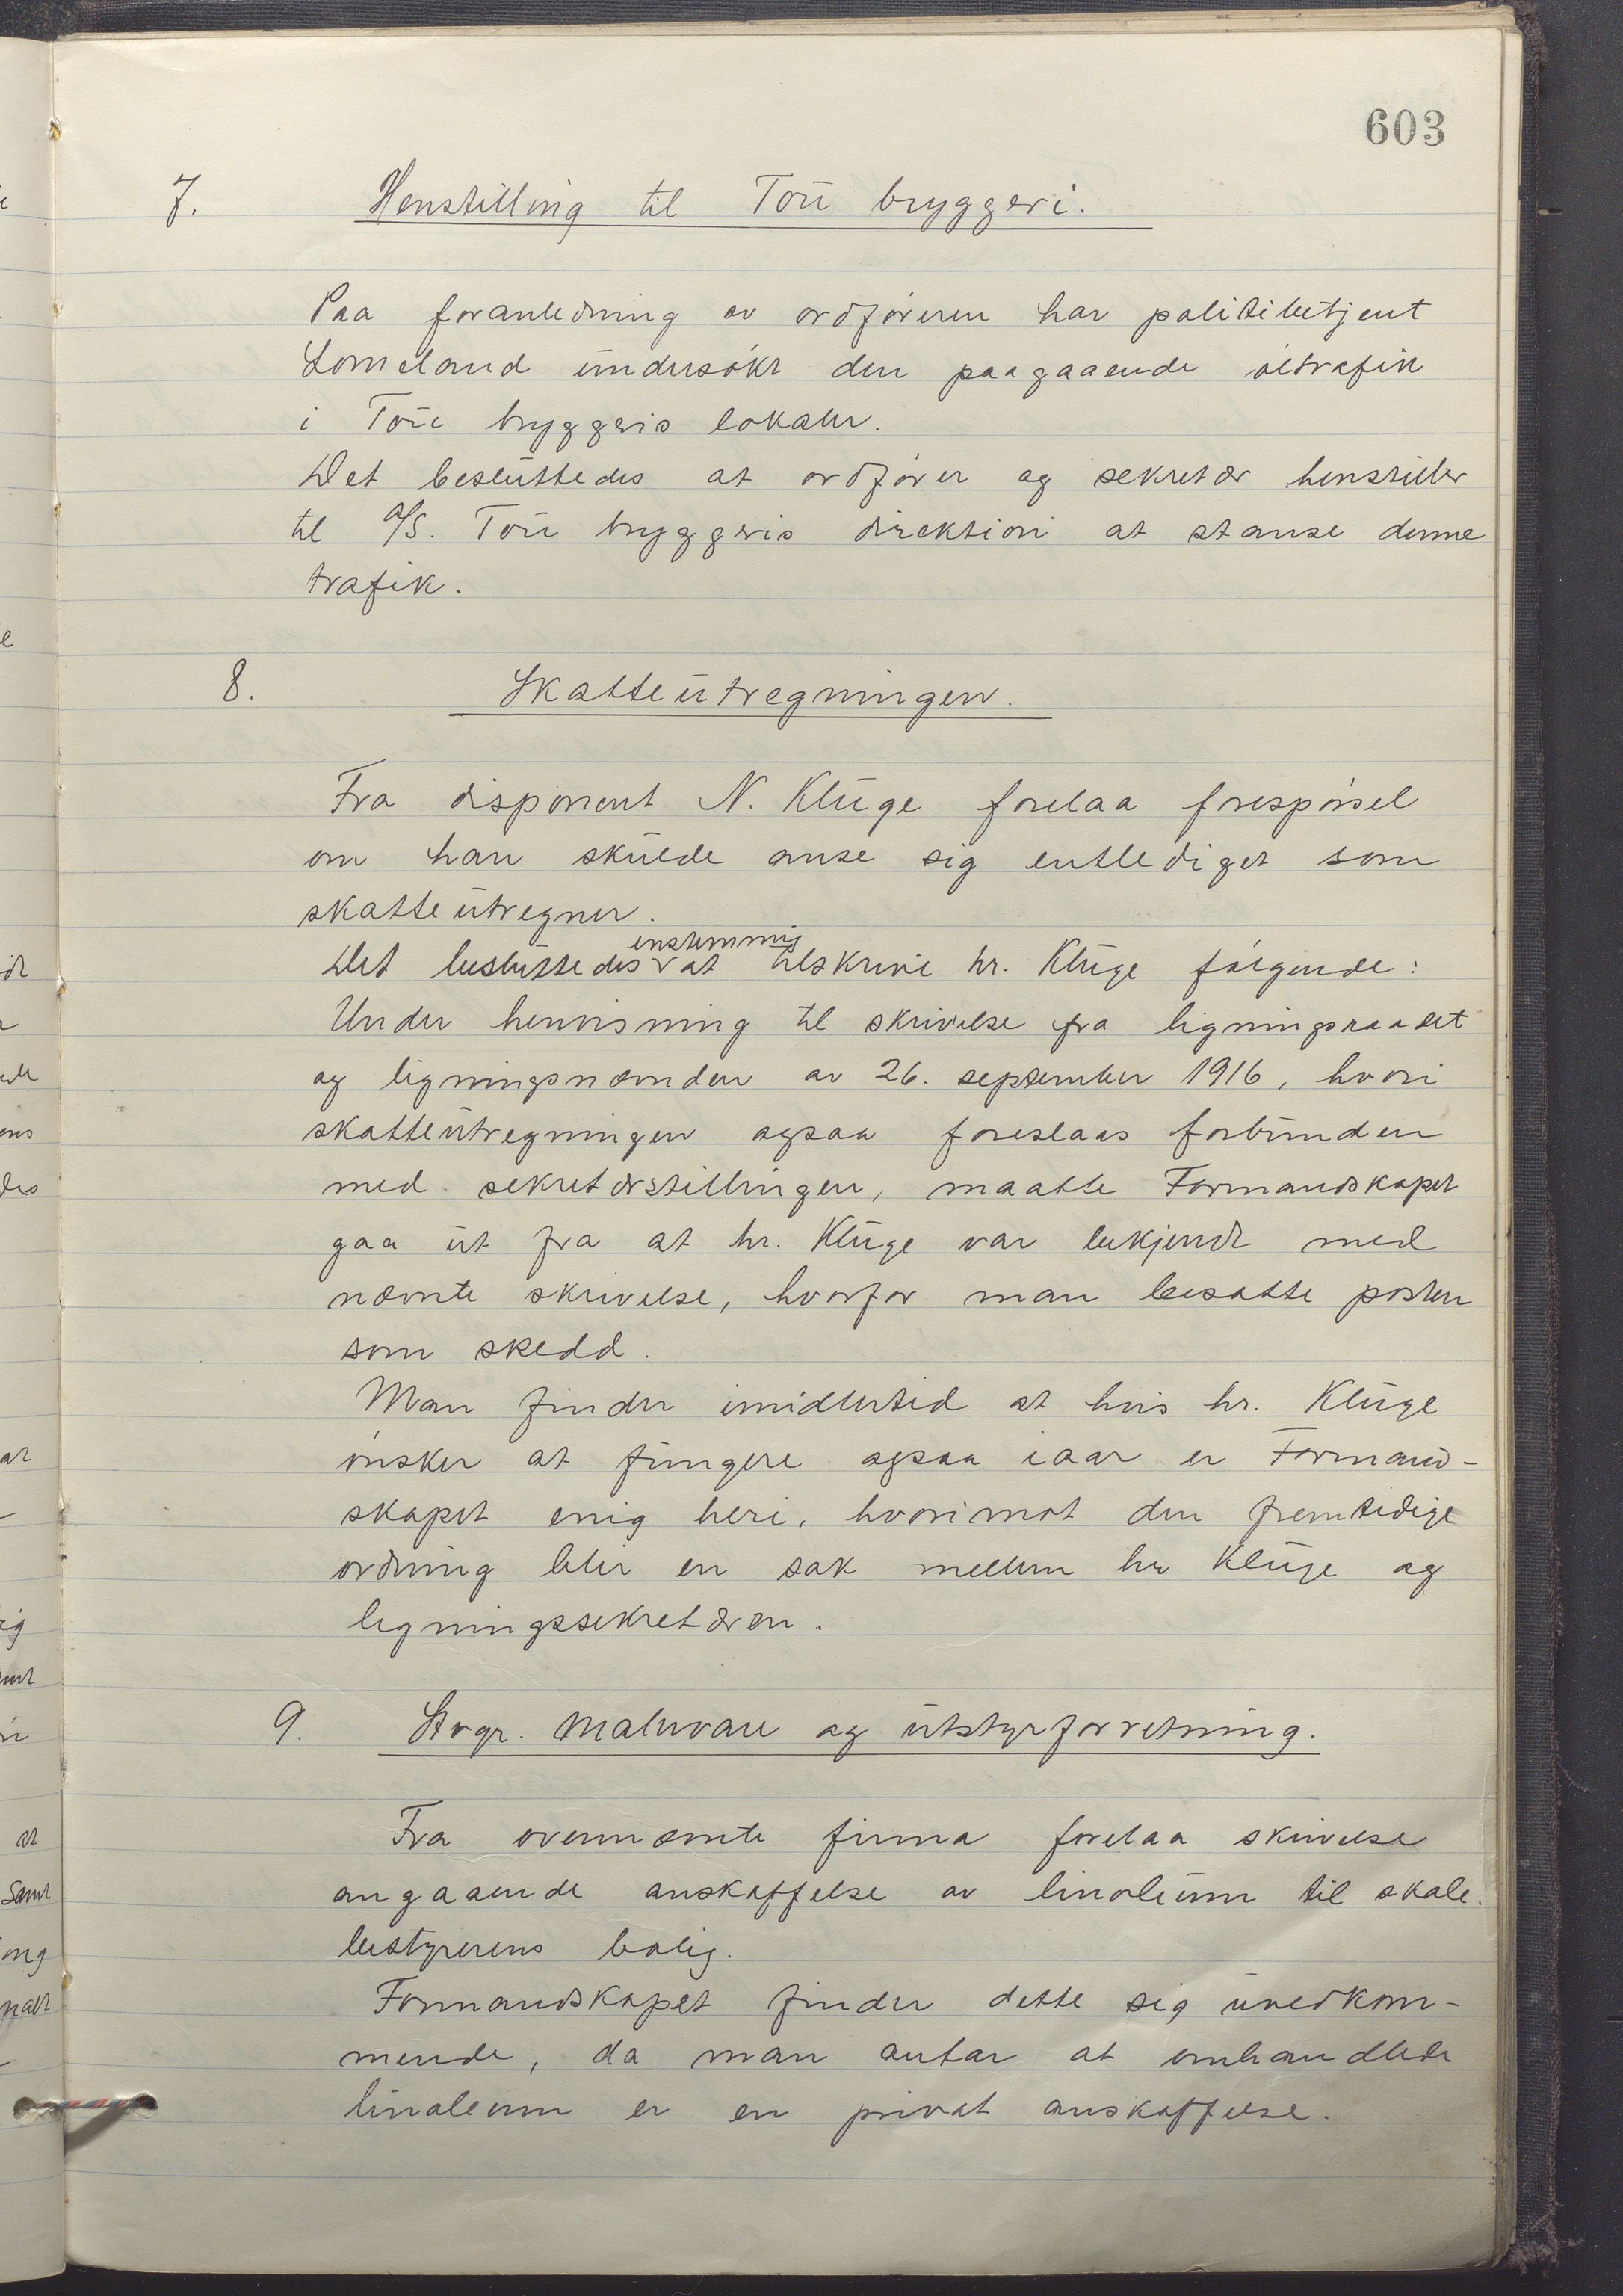 603
7. Henstilling til Tou bryggeri.
Paa foranledning av ordføreren har politibetjent
Lomeland undersøkt den paagaaende øltrafik
i Tou bryggeris lokaler.
Det besluttedes at ordfører og sekretær henstiller
til A/S. Tou bryggeris direktion at stanse denne
trafik.
8. Skatteutregningen.
Fra disponent N. Kluge forelaa forespørsel
om han skulde anse sig entlediget som
skatteutregner.
Det besluttedes enstemmig at tilskrive hr. Kluge følgende:
Under henvisning til skrivelse fra ligningsraadet
og ligningsnævnden av 26. september 1916, hvori
skatteutregningen ogsaa foreslaas forbunden
med sekretærstillingen, maatte Formandskapet
gaa ut fra at hr. Kluge var bekjendt med
nævnte skrivelse, hvorfor man besatte posten
som skedd.
Man finder imidlertid at hvis hr. Kluge
ønsker at fungere ogsaa iaar er Formand-
skapet enig heri, hvorimot den fremtidige
ordning blir en sak mellem hr Kluge og
ligningssekretæren.
9. Stvgr. Malervare og utstyrforretning.
Fra ovennævnte firma forelaa skrivelse
angaaende anskaffelse av linoleum til skole-
bestyrerens bolig.
Formandskapet finder dette sig uvedkom-
mende, da man antar at omhandlede
linoleum er en privat anskaffelse.